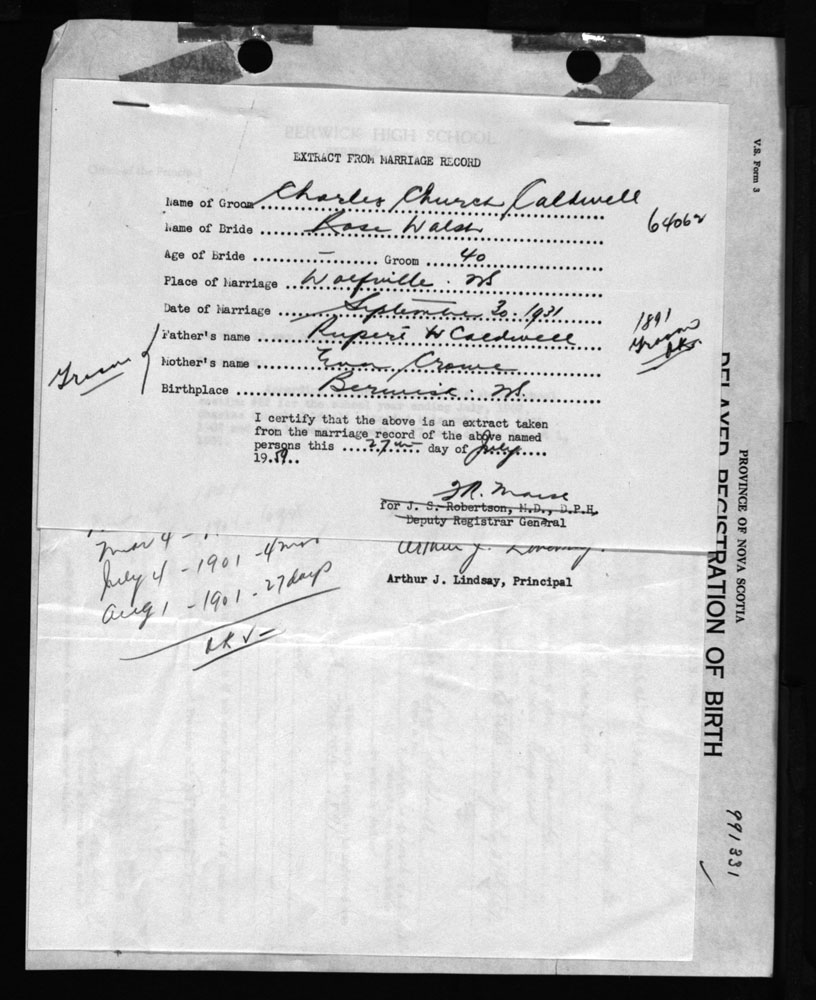 BERWICK HIGH SCHOOL
Office of the Principal
EXTRACT FROM MARRIAGE RECORD
Name of Groom Charles Church Caldwell
64062
Name of Bride Rose Walsh
Age of Bride – Groom 40
Place of Marriage Wolfville. NS
Date of Marriage September 30. 1931
1891
Father's name Rupert W Caldwell
Mother's name Crowe
Birthplace Berwick. NS.
I certify that the above is an extract taken
from the marriage record of the above named
persons this 27th day of July
1959
for J. S. Robertson, M.D., D.P.H.
Deputy Registrar General
Arthur J. Lindsay, Principal
Mar 4 -
July 4 - 1901 - 4 mos
Aug 1 - 1901 - 27 days
V.S. Form 3
PROVINCE OF NOVA SCOTIA
DELAYED REGISTRATION OF BIRTH
991331